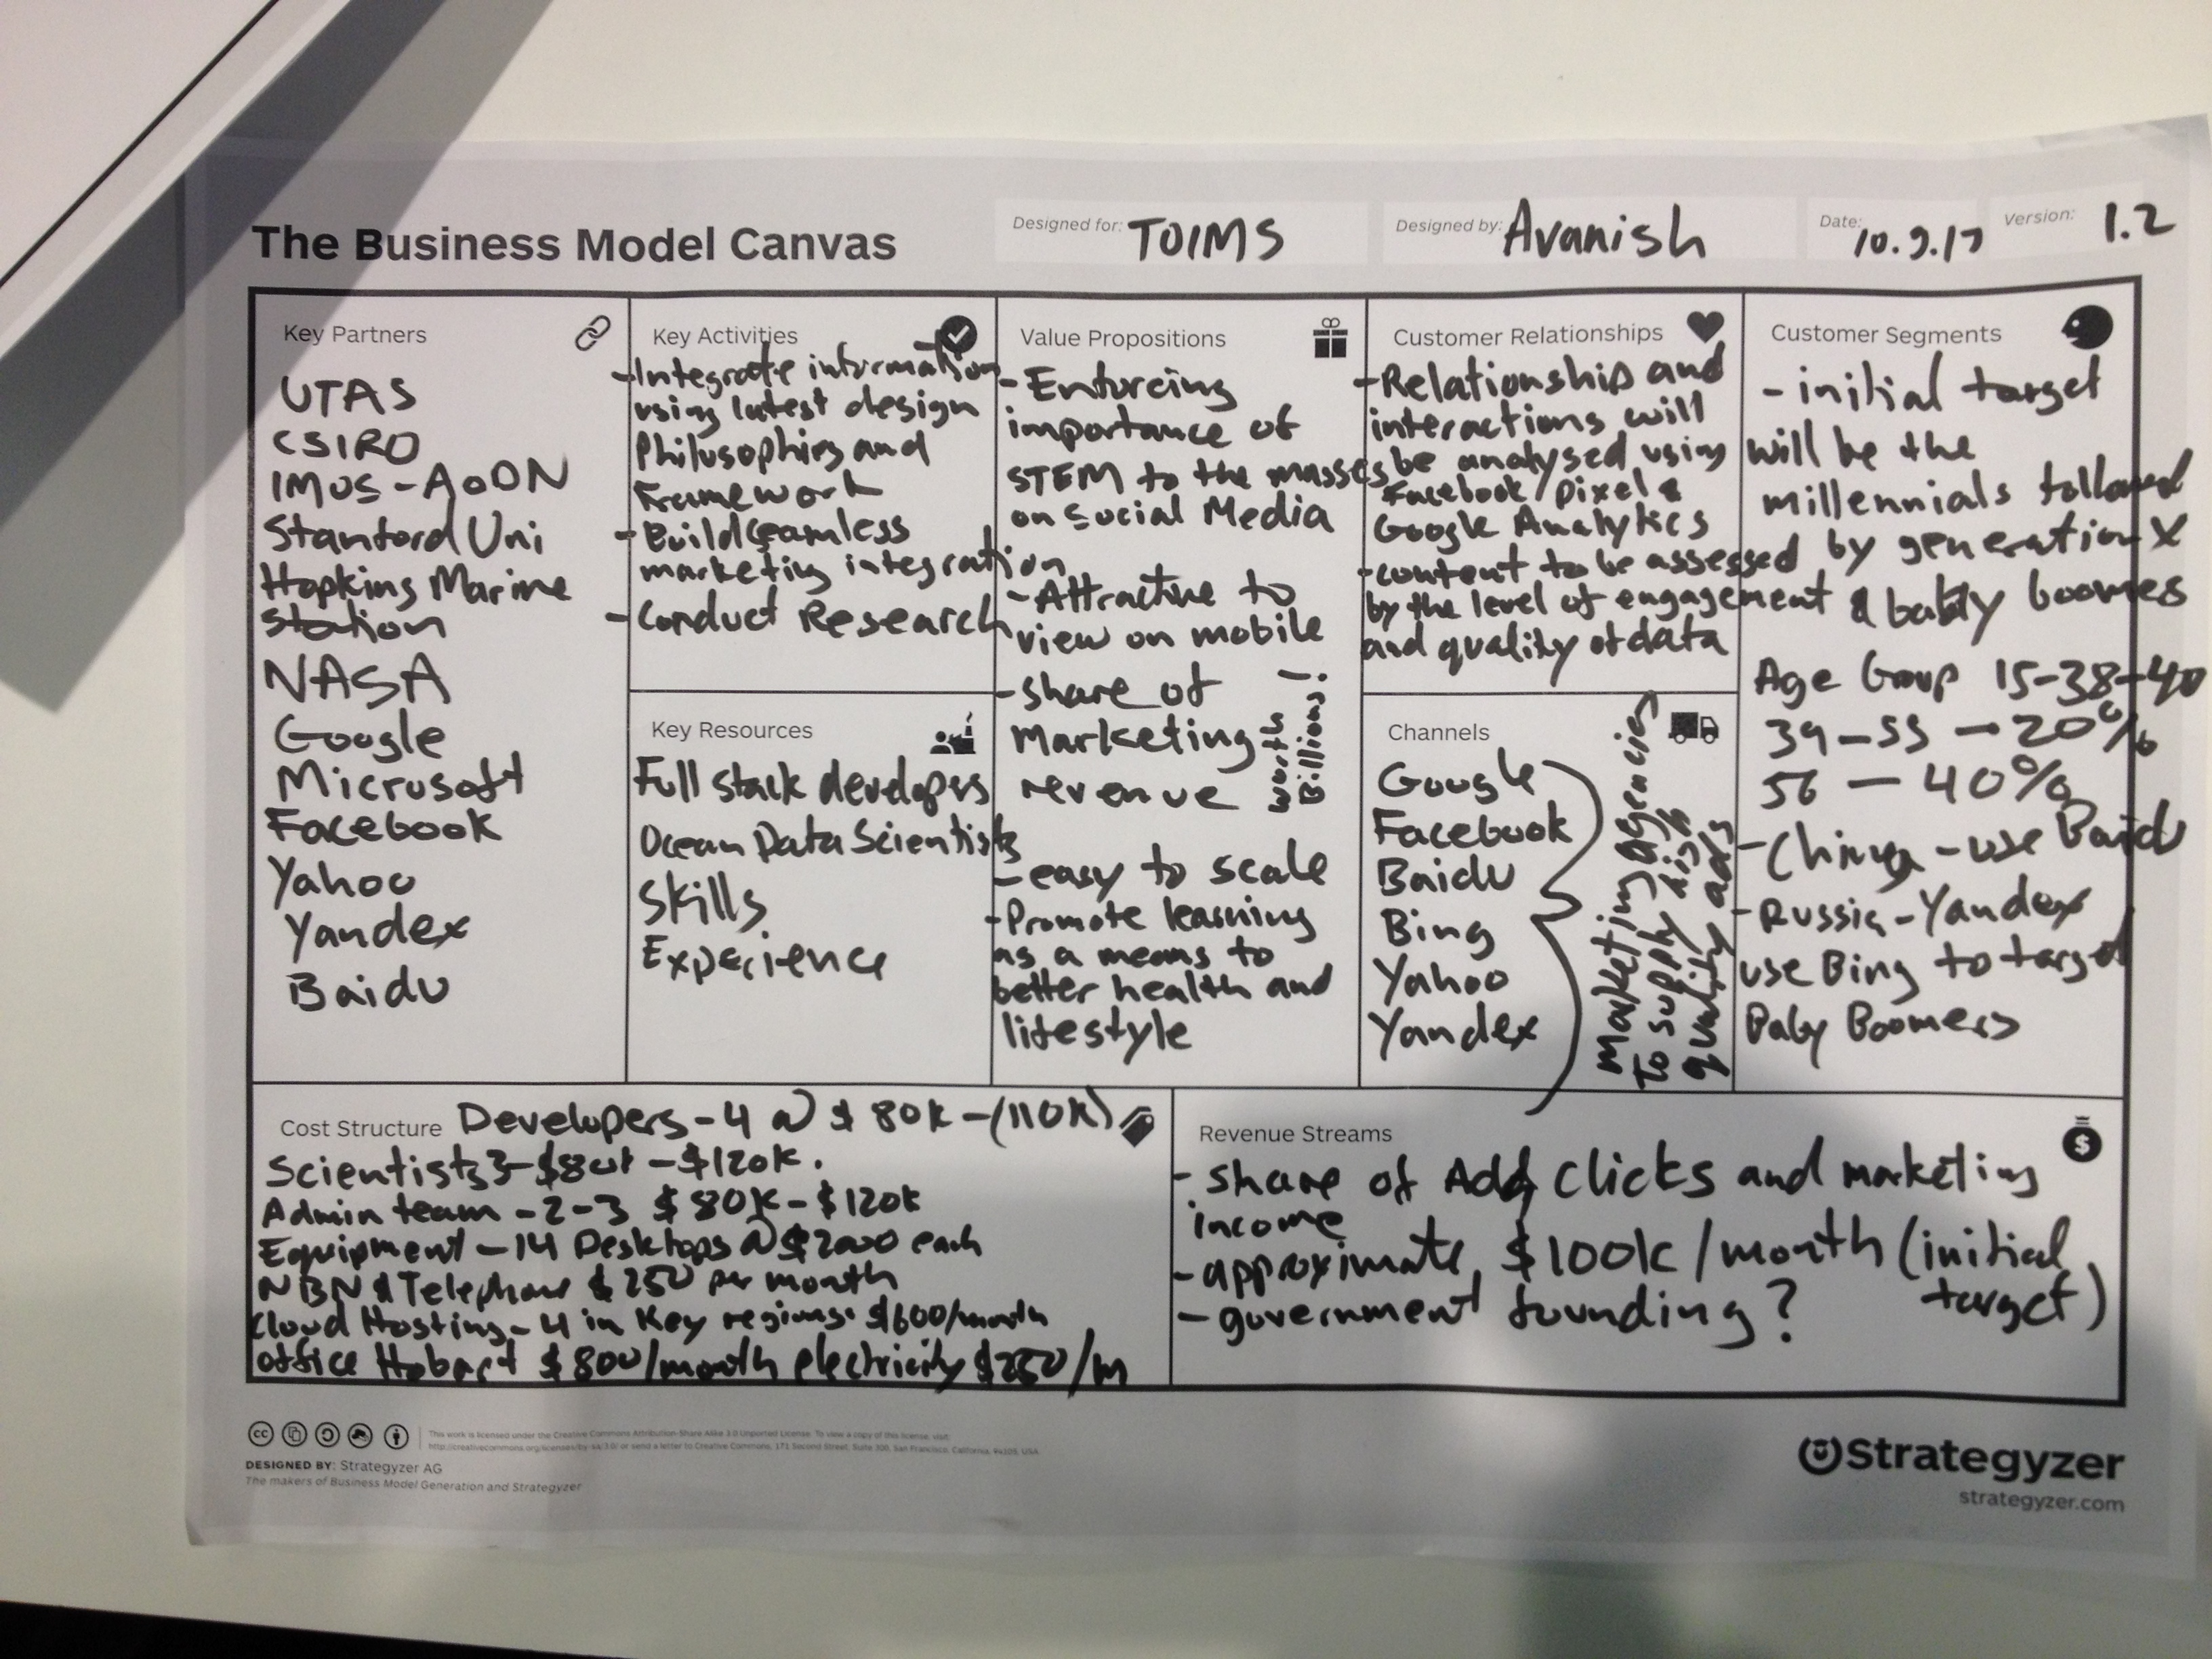 The Business Model Canvas
Designed for: TOIMS
Designed by: Avanish
Date: 10.9.17
Version: 1.2
Key Partners
UTAS
CSIRO
IMOS - AODN
Stanford Uni
Hopkins Marine
Station
NASA
Google
Microsoft
Facebook
Yahoo
Yandex
Baidu
Key Activities
- Integrate information
using latest design
Philosophies and
Framework
- Build seamless
marketing integration
- Conduct Research
Key Resources
Full stack developers
Ocean Data Scientists
Skills
Experience
Value Propositions
- Enforcing
importance of
STEM to the masses
on Social Media
- Attractive to
view on mobile
- share of
Marketing
revenue
worth
Billions!
- easy to scale
- Promote learning
as a means to
better health and
lifestyle
Customer Relationships
- Relationship and
interactions will
be analysed using
Facebook/pixel &
Google Analytics
- content to be assessed
by the level of engagement
and quality of data
Channels
Google
Facebook
Baidu
Bing
Yahoo
Yandex
marketing agencies
to supply high
quality ads
Customer Segments
- initial target
will be the
millennials followed
by generation X
& baby boomers
Age Group 15-38-40
39-55 - 20%
56 - 40%
- China - use Baidu
- Russia - Yandex
use Bing to target
Baby Boomers
Cost Structure
Developers - 4 @ $80k - (110k)
Scientists 3 - $80k - $120k.
Admin team - 2-3 $80K - $120k
Equipment - 14 Desktops @ $2000 each
NBN & Telephone $250 per month
Cloud Hosting - 4 in Key regions $600/month
office Hobart $800/month electricity $250/m
Revenue Streams
- share of Add clicks and marketing
income
- approximate $100k/month (initial
target)
- government founding?
This work is licensed under the Creative Commons Attribution-Share Alike 3.0 Unported License. To view a copy of this license, visit:
http://creativecommons.org/licenses/by-sa/3.0/ or send a letter to Creative Commons, 171 Second Street, Suite 300, San Francisco, California, 94105, USA.
DESIGNED BY: Strategyzer AG
The makers of Business Model Generation and Strategyzer
Strategyzer
strategyzer.com